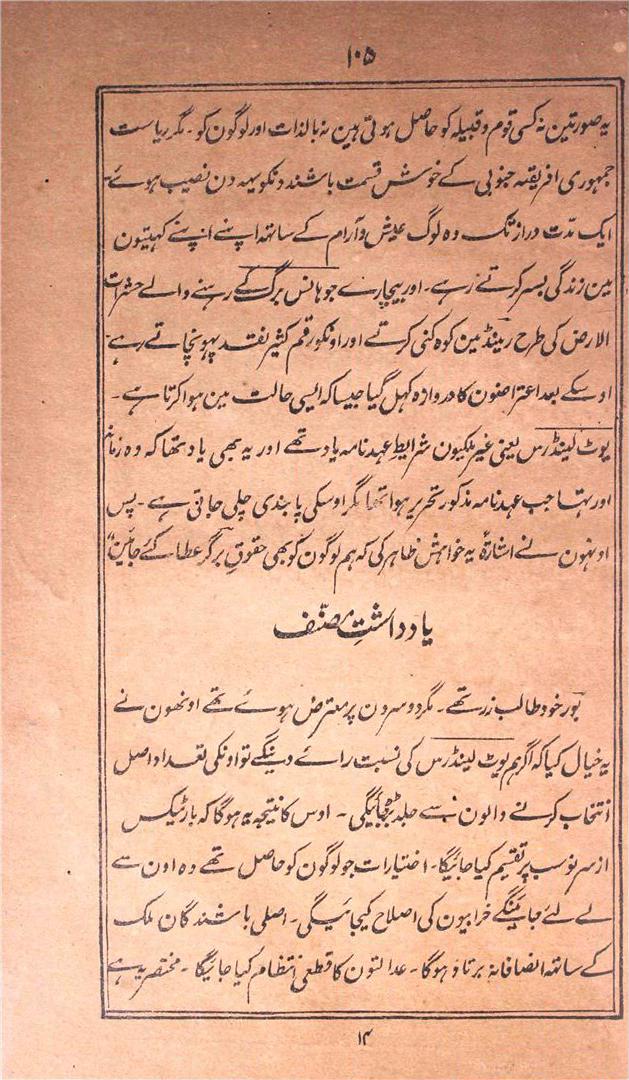 ۱۰۵
یہ صورتین نہ کسی قوم و قبیلہ کو حاصل ہوتی ہین نہ بالذات اور لوگون کو۔ مگر ریاست
جمہوری افریقہ جنوبی کے خوش قسمت باشندونکو یہہ دن نصیب ہوئے۔
ایک مدّت دراز تک وہ لوگ عیش و آرام کے ساتہہ اپنے اپنے کہیتون
مین زندگی بسر کرتے رہے۔ اور بیچارے جوہانس برگ کے رہنے والے حشرات
الارض کی طرح رینڈ مین کوہ کنی کرتے اور اونکو رقم کثیر نقد پہونچاتے رہے
اوسکے بعد اعتراضون کا دروازہ کہل گیا جیسا کہ ایسی حالت مین ہوا کرتا ہے۔
یوٹ لینڈرس یعنی غیر ملکیون شرایطِ عہدنامہ یاد تھے اور یہ بھی یاد تھا کہ وہ زمانہ
اور تہا جب عہدنامہ مذکور تحریر ہوا تھا مگر اوسکی پابندی چلی جاتی ہے۔ پس
اونہون نے اشارۃً یہ خواہش ظاہر کی کہ ہم لوگون کو بھی حقوقِ برگر عطا کئے جائین“
یادداشتِ مصنّف
بور خود طالب زر تھے۔ مگر دوسرون پر معترض ہوئے تھے اونھون نے
یہ خیال کیا کہ اگر ہم یوٹ لینڈرس کی نسبت رائے دینگے تو اونکی تعداد اصل
انتخاب کرنے والون سے جلد بڑھجائیگی۔ اوس کا نتیجہ یہ ہوگا کہ بار ٹیکس
از سرِ نو سب پر تقسیم کیا جائیگا۔ اختیارات جو لوگون کو حاصل تھے وہ اون سے
لے لئے جائینگے خرابیون کی اصلاح کیجائیگی۔ اصلی باشندگان ملک
کے ساتہہ انصافانہ برتاو ہوگا۔ عدالتون کا قطعی انتظام کیا جائیگا۔ مختصر یہ ہے
۱۴